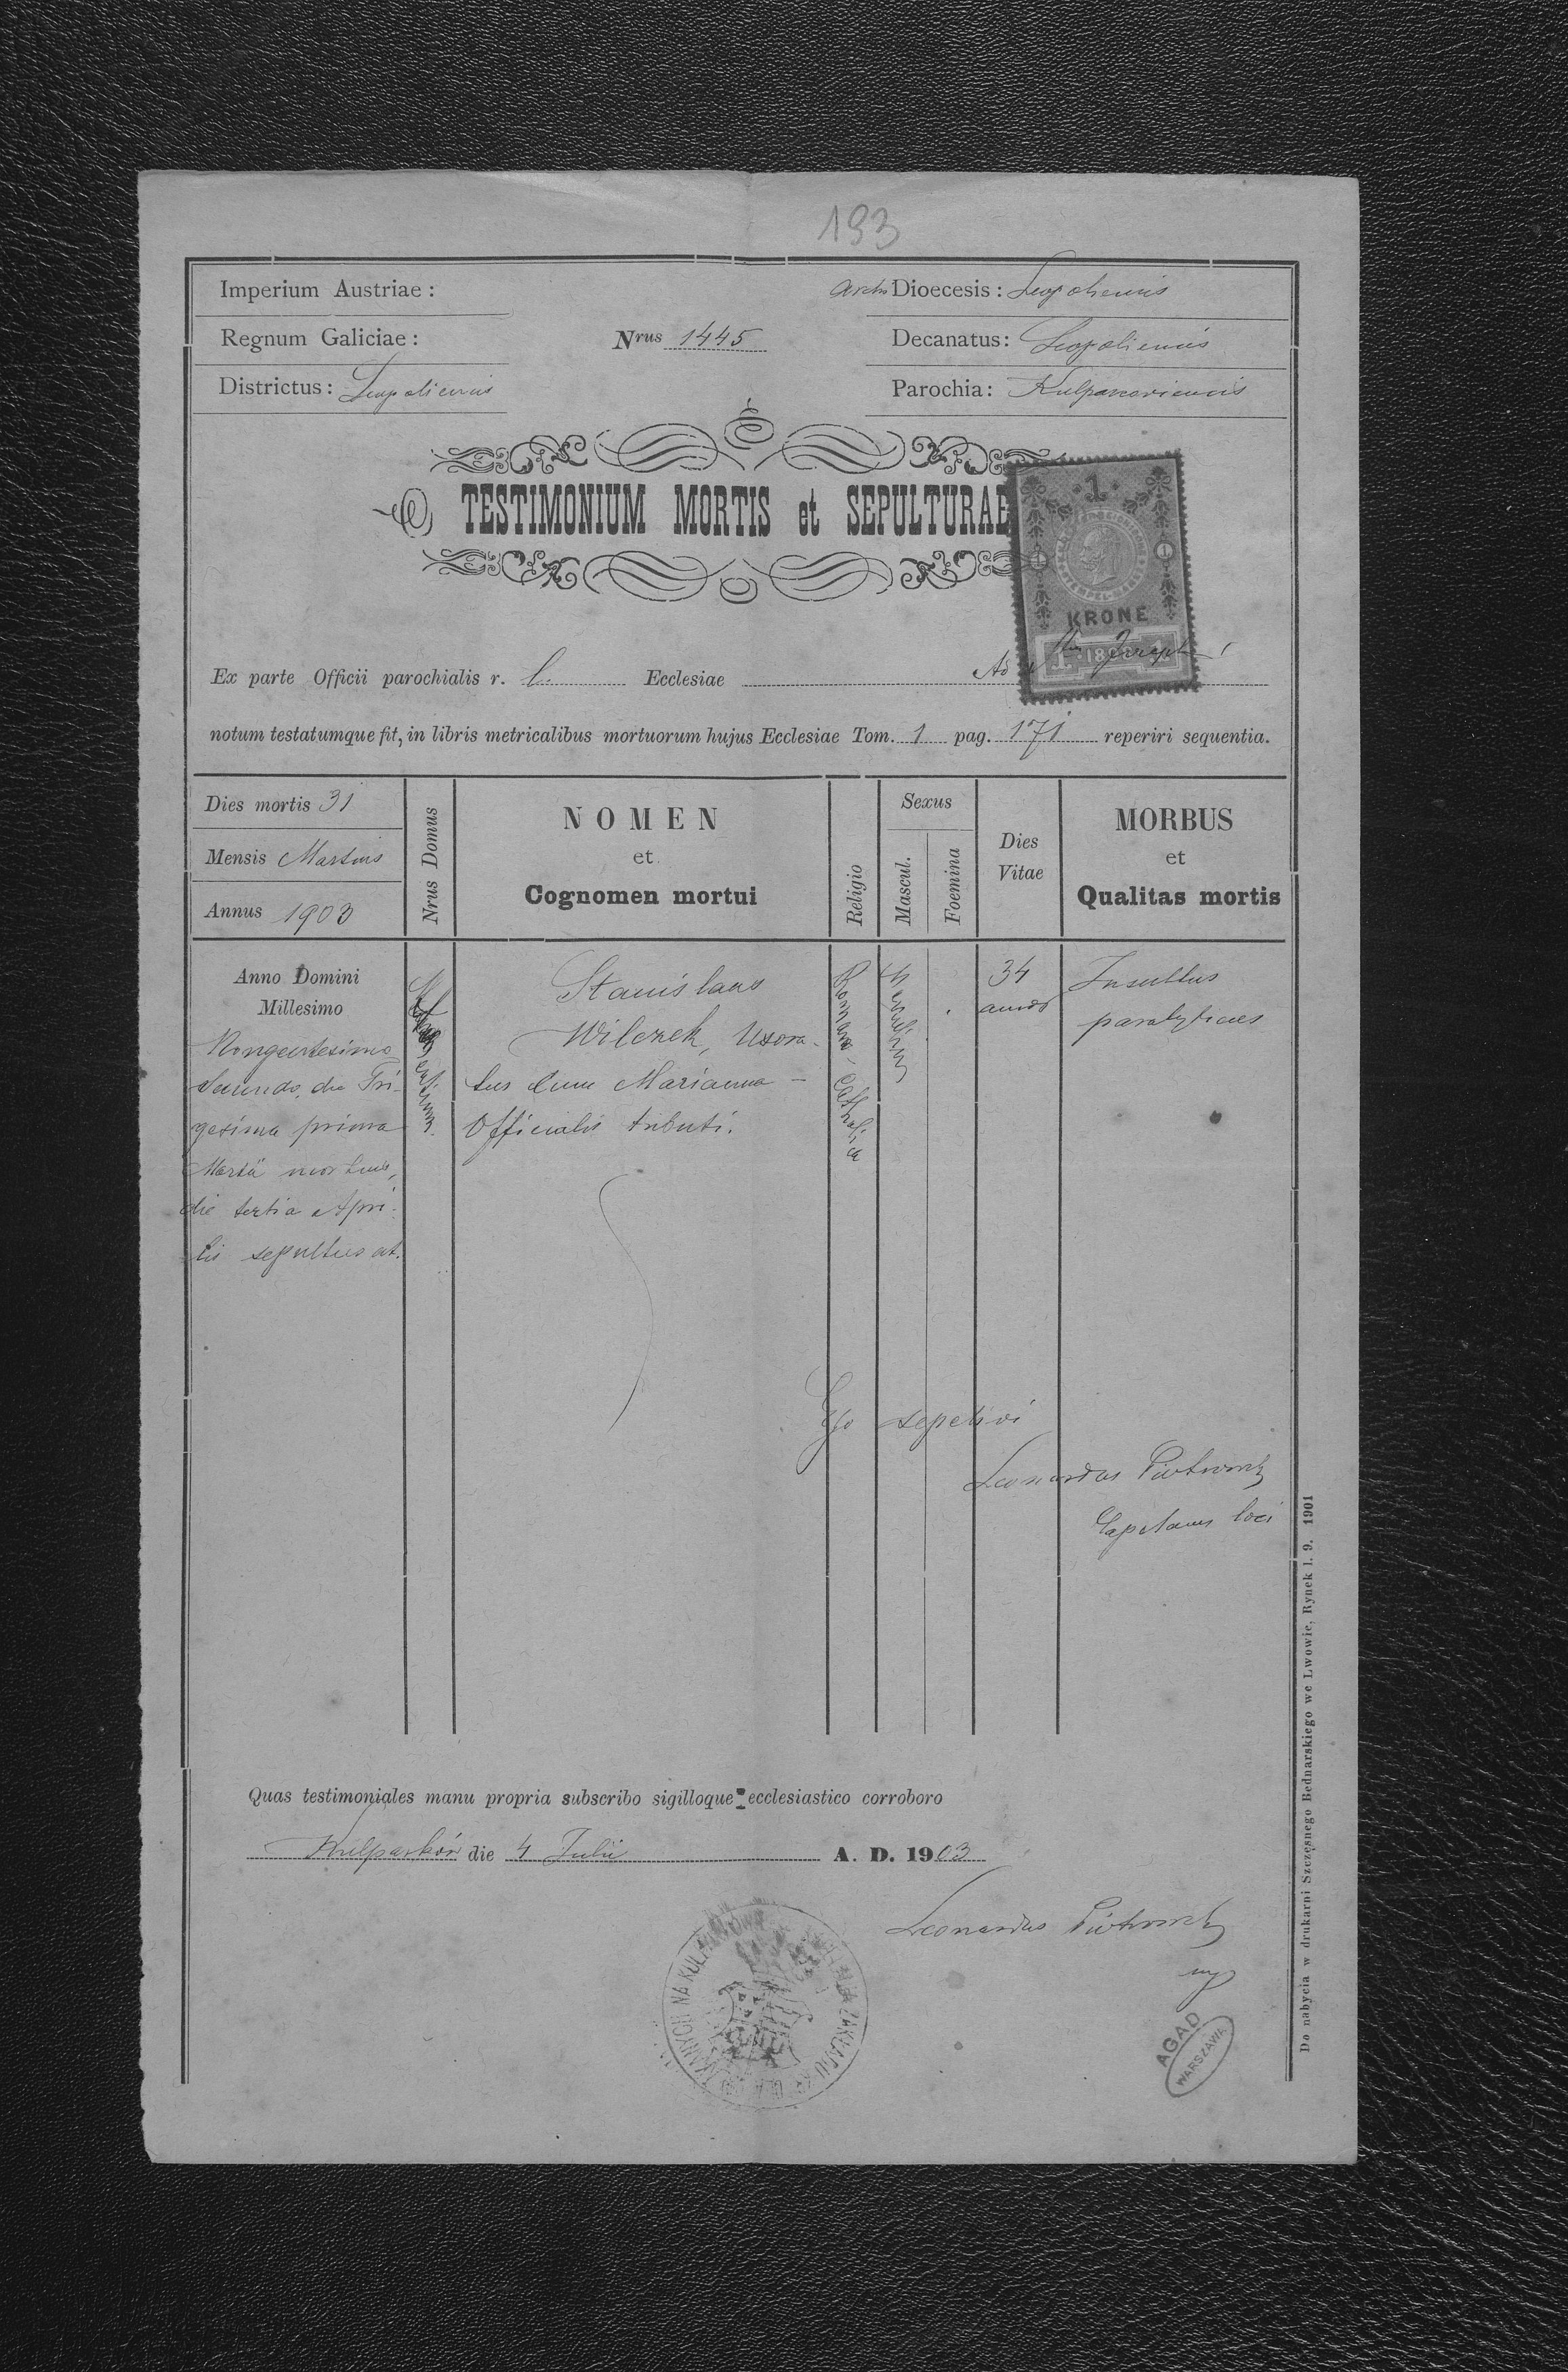 193
Imperium Austriae:
Archi Dioecesis: Leopoliensis
Regnum Galiciae:
Nrus 1445
Decanatus: Leopoliensis
Districtus: Leopoliensis
Parochia: Kulparcoviensis
TESTIMONIUM MORTIS et SEPULTURAE
1
1 1
STEMPEL-MARKE
KRONE
1
Ex parte Officii parochialis r. l. Ecclesiae Ad Josephi
notum testatumque fit, in libris metricalibus mortuorum hujus Ecclesiae Tom. 1 pag. 171 reperiri sequentia.
Dies mortis 31
Mensis Martius
Annus 1903
Nrus Domus
NOMEN
et
Cognomen mortui
Religio
Sexus
Mascul.
Foemina
Dies
Vitae
MORBUS
et
Qualitas mortis
Anno Domini
Millesimo
Nongentesimo
Secundo, die Tri-
gesima prima
Martii mortuus,
die tertia Apri-
lis sepultus est.
Stanislaus
Wilczek, Uxora-
tus cum Marianna -
Officialis tributi.
Romano-Catholica
34
annos
Insultus
paralyticus
Ego sepelivi
Leonardus Piotrowski
Capelanus loci
Quas testimoniales manu propria subscribo sigilloque ecclesiastico corroboro
Kulparków die 4 Julii A. D. 1903
Leonardus Piotrowski
mp
NA KULPARKOWIE ZAKŁADU
AGAD
WARSZAWA
Do nabycia w drukarni Szczęsnego Bednarskiego we Lwowie, Rynek l. 9. 1901